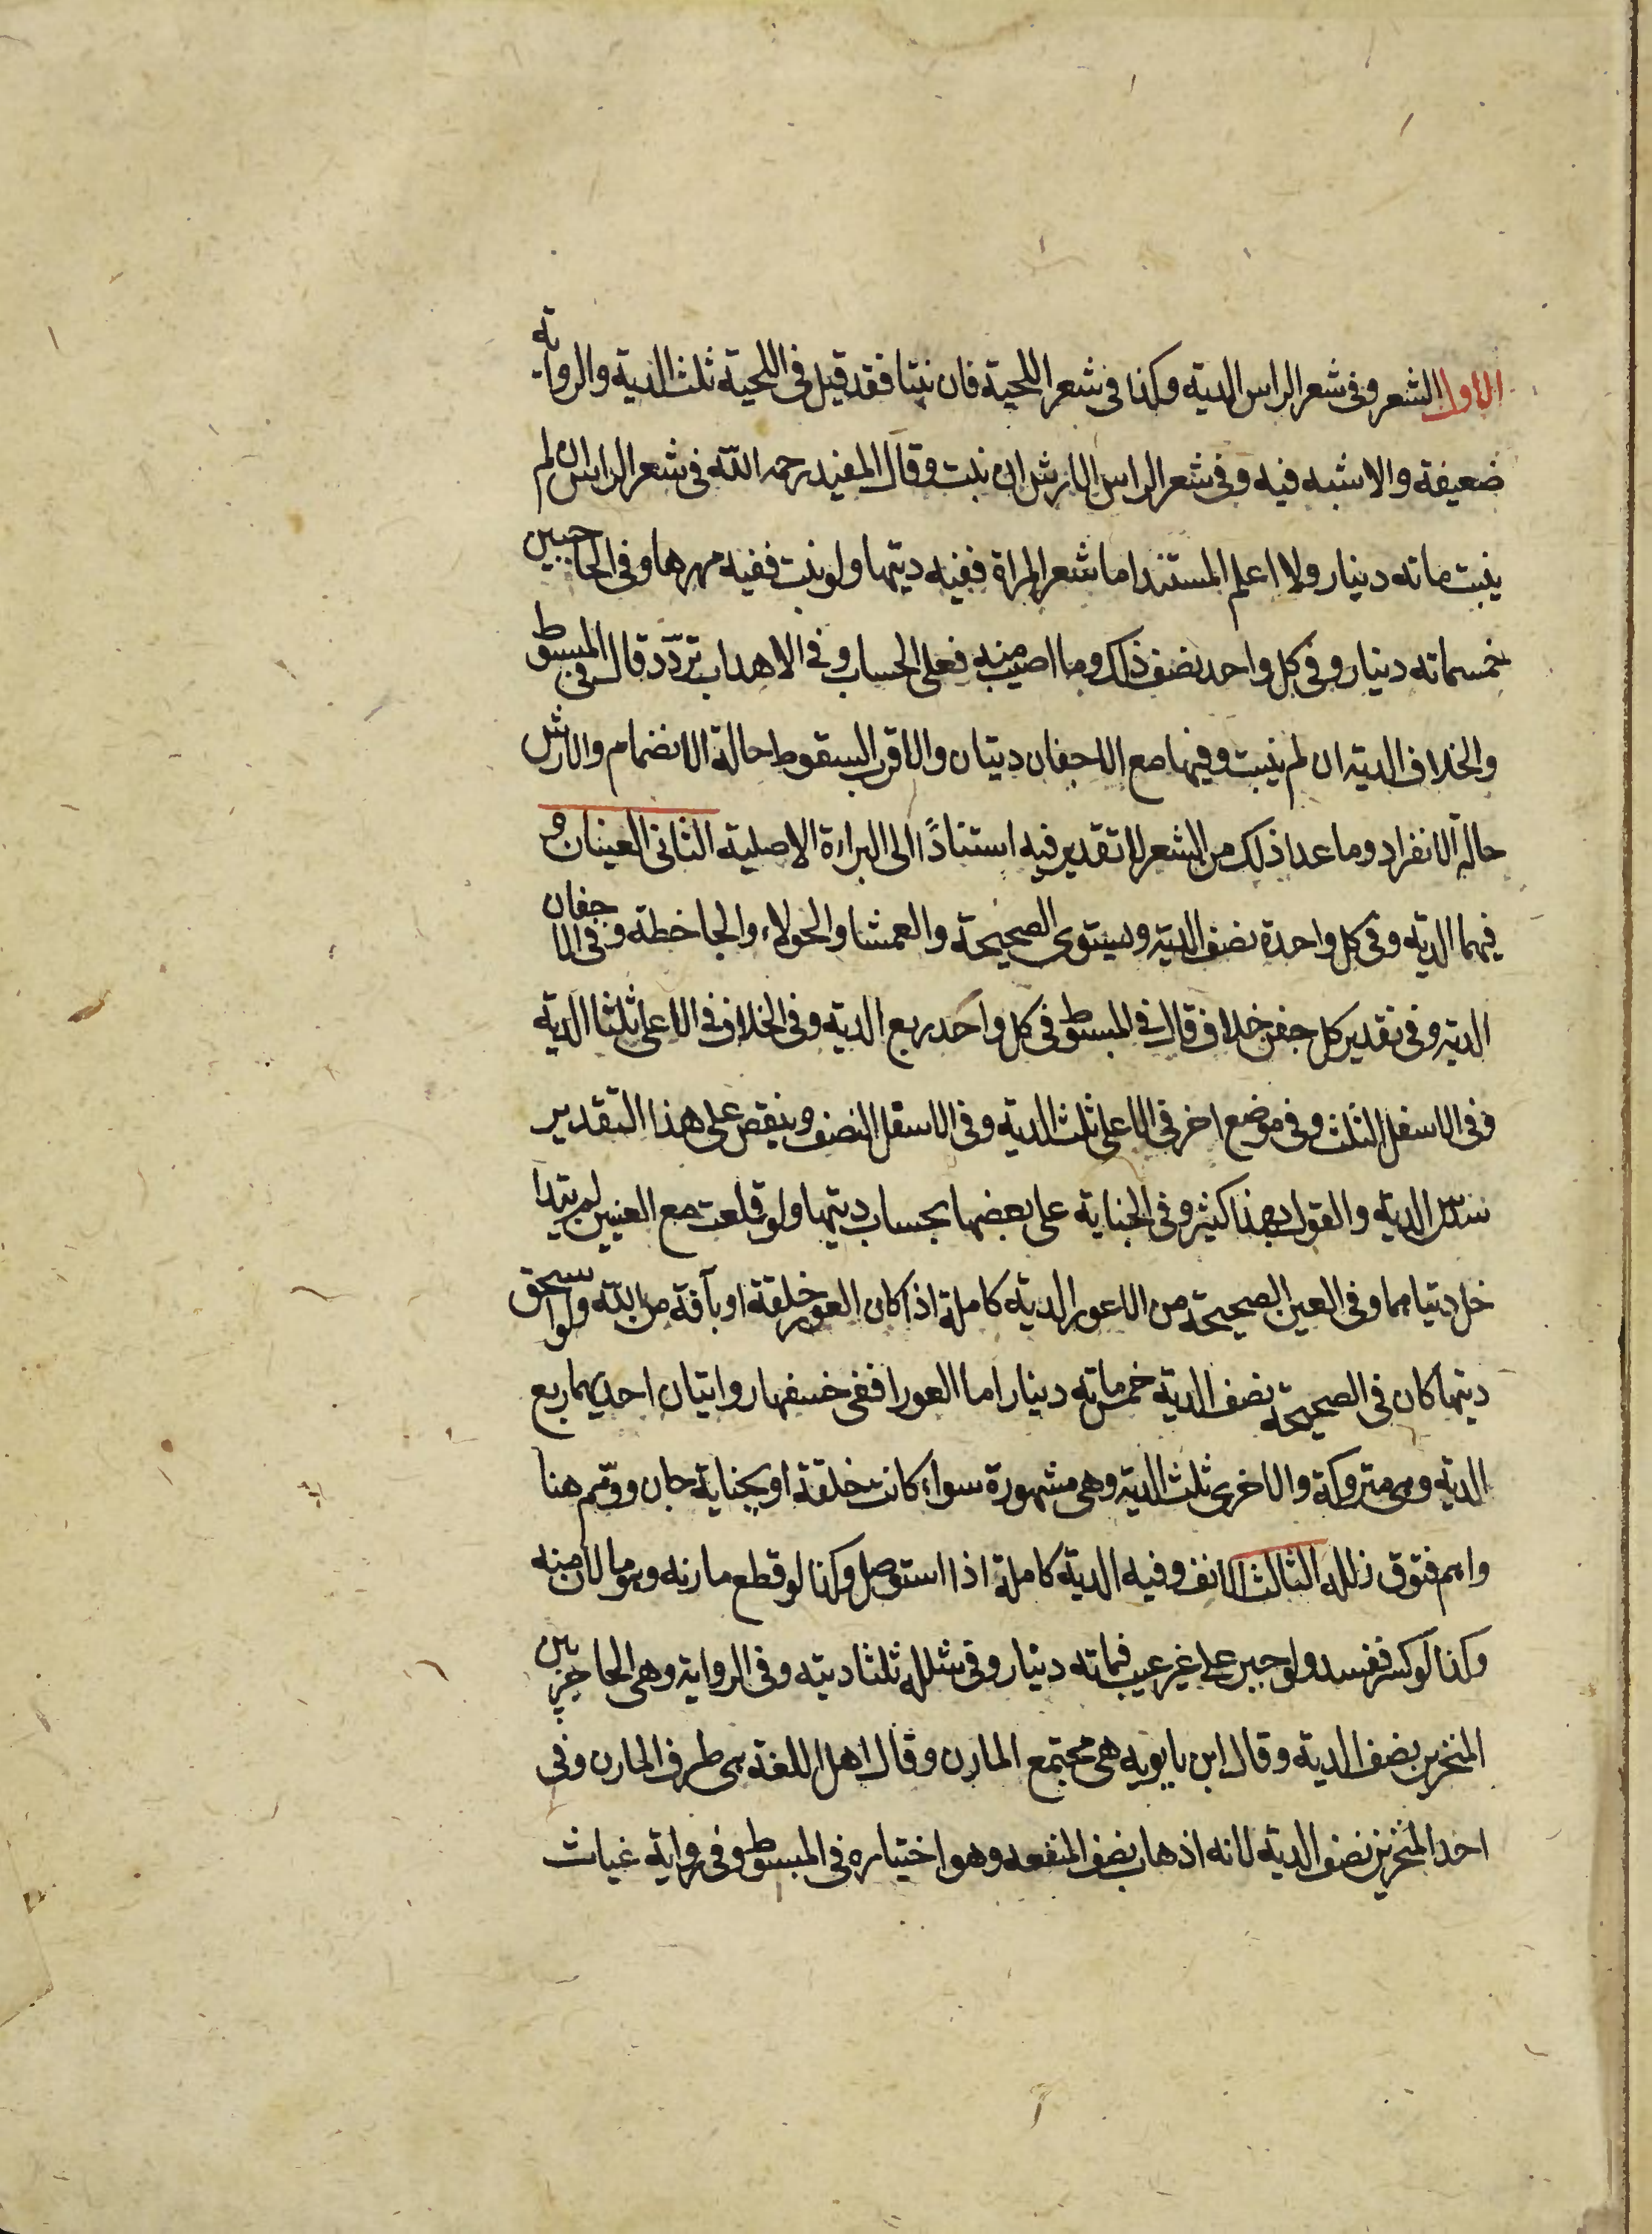 الاول الشعر وفى شعر الراس الدية وكذا فى شعر اللحية فان نبتا فقد قيل فى اللحية ثلث الدية والرواية
ضعيفة والاشبه فيه وفى شعر الراس الارش ان نبت وقال المفيد رحمه اللّه فى شعر الراس ان لم
ينبت مائه دينار ولا اعلم المستند اما شعر المراة ففيه ديتها ولو نبت ففيه مهرها وفى الحاجبين
خمسمائه دينار وفى كل واحد نصف ذلك وما اصيب منه فعلى الحساب وفى الاهداب تردّد قال فى المبسوط
والخلاف الدية ان لم ينبت وفيها مع الاجفان ديتان والاقرب السقوط حالة الانضمام والارش
حالة الانفراد وما عدا ذلك من الشعر لا تقدير فيه استناداً الى البراءة الاصلية الثانى العينان و
فيهما الدية وفى كل واحدة نصف الدية ويستوى الصحيحة والعمشا والحولاء والجاحظة وفى الاجفان
الدية وفى تقدير كل جفن خلاف قال فى المبسوط فى كل واحد ربع الدية وفى الخلاف فى الاعلى ثلثا الدية
وفى الاسفل الثلث وفى موضع اخر فى الاعلى ثلث الدية وفى الاسفل النصف وينقص على هذا التقدير
سدس الدية والقول بهذا كثير وفى الجناية على بعضها بحساب ديتها ولو قلعت مع العينين لم يتدا
خل ديتاهما وفى العين الصحيحة من الاعور الدية كاملة اذا كان العور خلقة او بآفة من اللّه ولو استحق
ديتها كان فى الصحيحة نصف الدية خمسمائه دينار اما العورا ففى خسفها روايتان احديهما ربع
الدية وهى متروكة والاخرى ثلث الدية وهى مشهورة سواء كانت خلقة او بجناية جان ووهم هنا
واهم فتوق زلله الثالث الانف وفيه الدية كاملة اذا استوصل وكذا لو قطع مارنه وهو ما لان منه
وكذا لو كسر ففسد ولو جبر على غير عيب فمائه دينار وفى شلله ثلثا ديته وفى الرواية وهى الحاجز بين
المنخرين نصف الدية وقال ابن بابويه هى مجتمع المارن وقال اهل اللغة هى طرف المارن وفى
احد المنخرين نصف الدية لانه اذهاب نصف المنفعه وهو اختياره فى المبسوط وفى رواية غياث